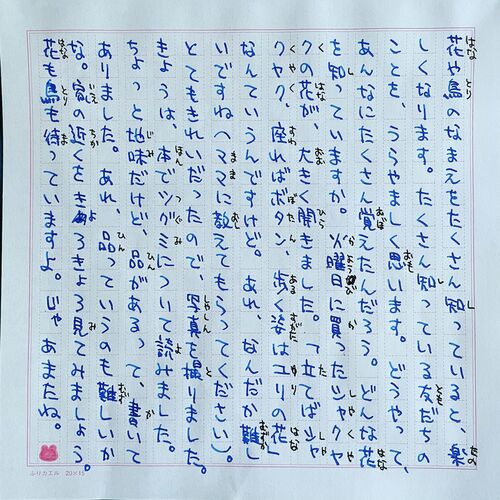 花や鳥のなまえをたくさん知っていると、楽
しくなります。たくさん知っている友だちの
ことを、うらやましく思います。どうやって、
あんなにたくさん覚えたんだろう。どんな花
を知っていますか。火曜日に買ったシャクヤ
クの花が、大きく開きました。「立てばシャ
クヤク、座ればボタン、歩く姿はユリの花」
なんていうんですけど。あれ、なんだか難し
いですね(ママに教えてもらってください)。
とてもきれいだったので、写真を撮りました。
きょうは、本でツグミについて読みました。
ちょっと地味だけど、品があるって、書いて
ありました。あれ、品っていうのも難しいか
な。家の近くをきょろきょろ見てみましょう。
花も鳥も待っていますよ。じゃあまたね。
ふりカエル 20×15